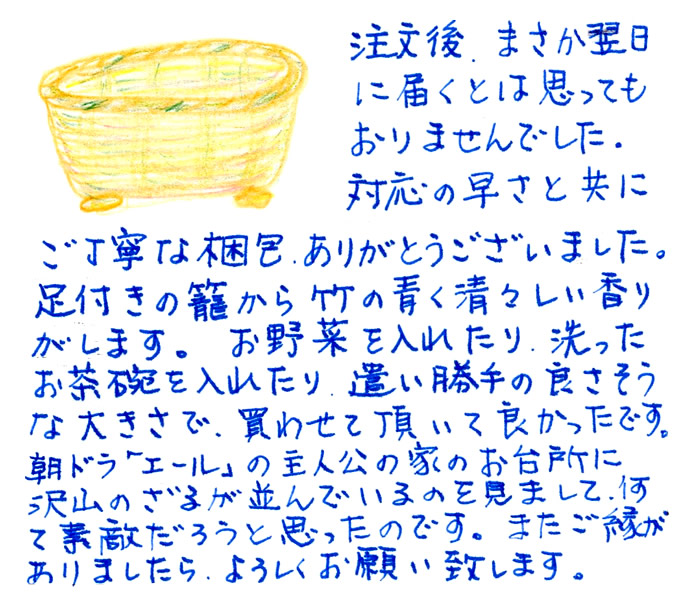 注文後、まさか翌日
に届くとは思っても
おりませんでした.
対応の早さと共に
ご丁寧な梱包、ありがとうございました。
足付きの籠から竹の青く清々しい香り
がします。お野菜を入れたり、洗った
お茶碗を入れたり、遣い勝手の良さそう
な大きさで、買わせて頂いて良かったです。
朝ドラ「エール」の主人公の家のお台所に
沢山のざるが並んでいるのを見まして、何
て素敵だろうと思ったのです。またご縁が
ありましたら、ようしくお願い致します。